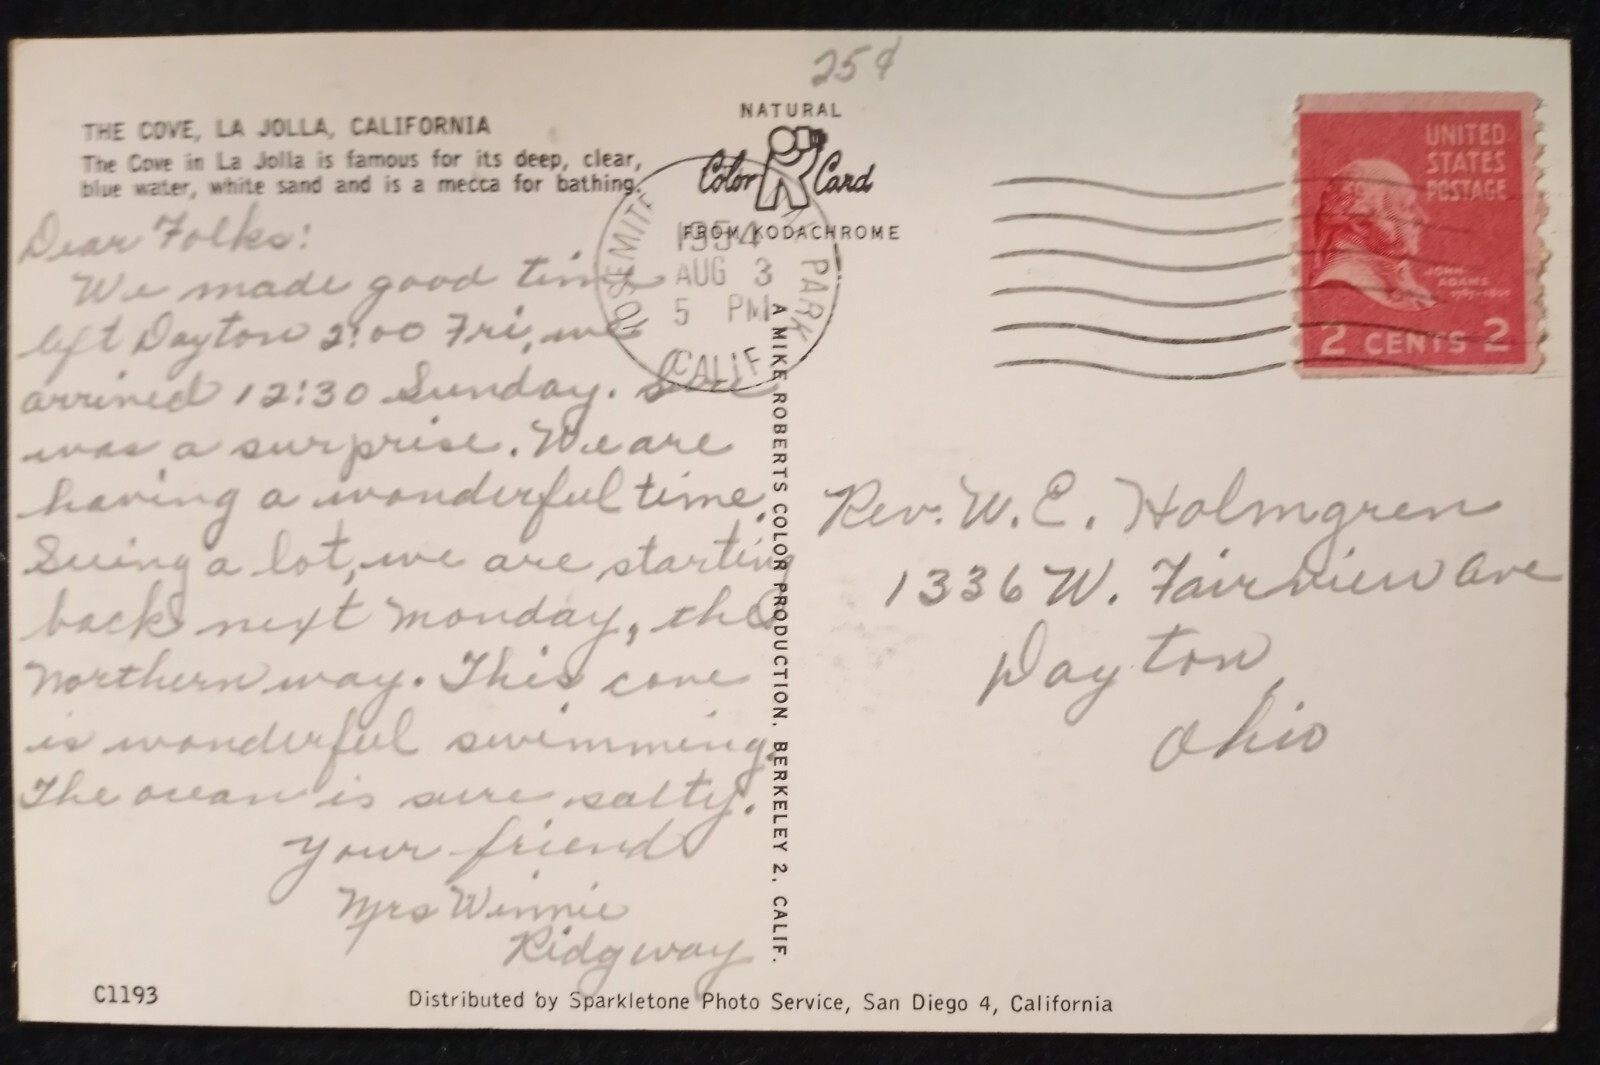 25¢
THE COVE, LA JOLLA, CALIFORNIA
The Cove in La Jolla is famous for its deep, clear,
blue water, white sand and is a mecca for bathing.
Dear Folks:
We made good time
left Dayton 2:00 Fri, we
arrived 12:30 Sunday.
was a surprise. We are
having a wonderful time.
Seeing a lot, we are starting
back next Monday, the
Northern way. This cove
is wonderful swimming.
The ocean is sure salty.
Your friend
Mrs Winnie
Ridgway
C1193
Distributed by Sparkletone Photo Service, San Diego 4, California
NATURAL
Color Card
FROM KODACHROME
A MIKE ROBERTS COLOR PRODUCTION. BERKELEY 2, CALIF.
YOSEMITE PARK
1954
AUG 3
5 PM
CALIF
UNITED
STATES
POSTAGE
JOHN
ADAMS
1797-1801
2 CENTS 2
Rev. W. E. Holmgren
1336 W. Fairview Ave
Dayton
Ohio